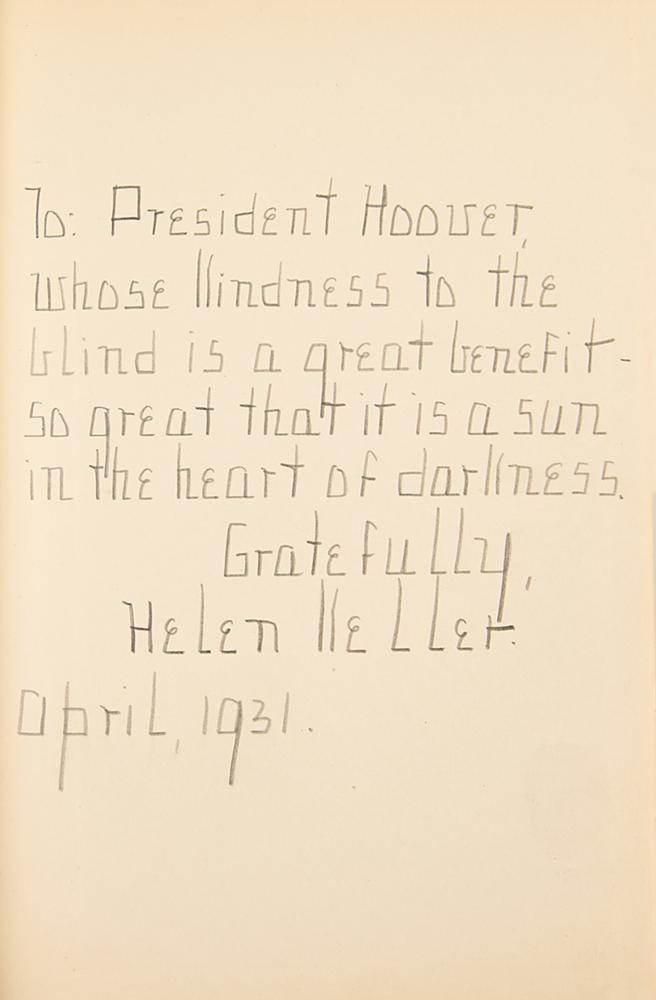 To: President Hoover,
whose kindness to the
blind is a great benefit-
so great that it is a sun
in the heart of darkness.
Gratefully,
Helen Keller.
April, 1931.